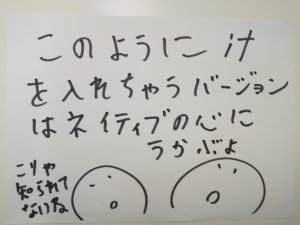 このように け
を入れちゃうバージョン
はネイティブの心に
うかぶよ
こりゃ
知られて
ないね